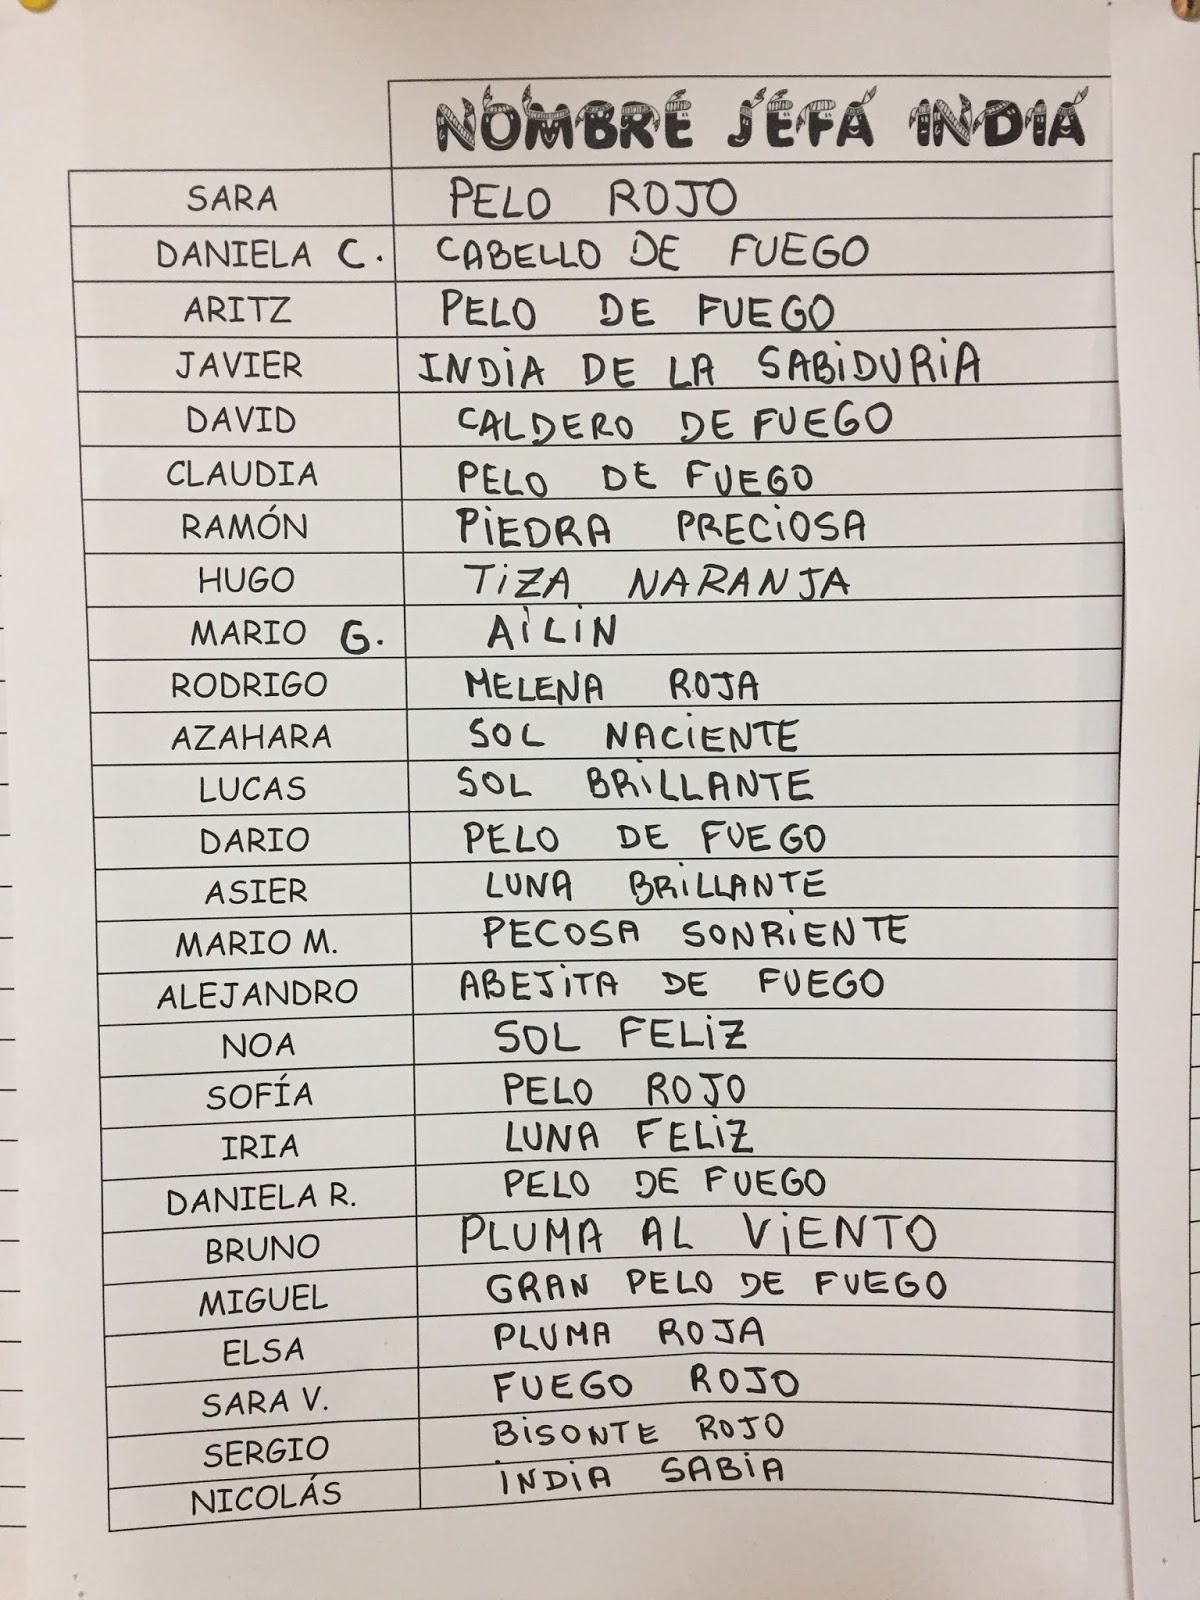 NOMBRE JEFA INDIA
SARA PELO ROJO
DANIELA C. CABELLO DE FUEGO
ARITZ PELO DE FUEGO
JAVIER INDIA DE LA SABIDURIA
DAVID CALDERO DE FUEGO
CLAUDIA PELO DE FUEGO
RAMÓN PIEDRA PRECIOSA
HUGO TIZA NARANJA
MARIO G. AILIN
RODRIGO MELENA ROJA
AZAHARA SOL NACIENTE
LUCAS SOL BRILLANTE
DARIO PELO DE FUEGO
ASIER LUNA BRILLANTE
MARIO M. PECOSA SONRIENTE
ALEJANDRO ABEJITA DE FUEGO
NOA SOL FELIZ
SOFÍA PELO ROJO
IRIA LUNA FELIZ
DANIELA R. PELO DE FUEGO
BRUNO PLUMA AL VIENTO
MIGUEL GRAN PELO DE FUEGO
ELSA PLUMA ROJA
SARA V. FUEGO ROJO
SERGIO BISONTE ROJO
NICOLÁS INDIA SABIA